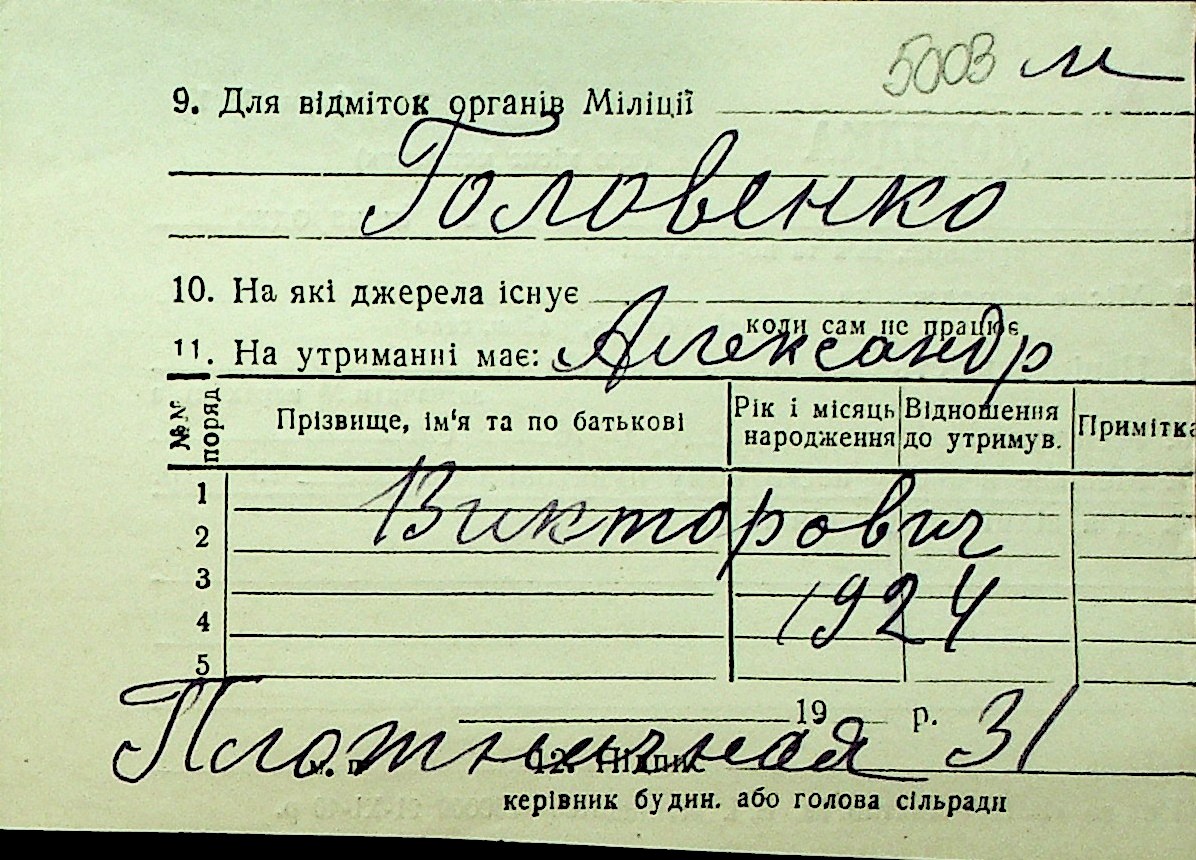 5003 м
9. Для відміток органів Міліції
Головенко
10. На які джерела існує
коли сам не працює
11. На утриманні має: Александр
№№ поряд Прізвище, ім'я та по батькові Рік і місяць народження Відношення до утримув. Примітка
1
Викторович
2
3
1924
4
5
19 р.
Плотничная 31
м. п. 12. Підпис
керівник будин. або голова сільради